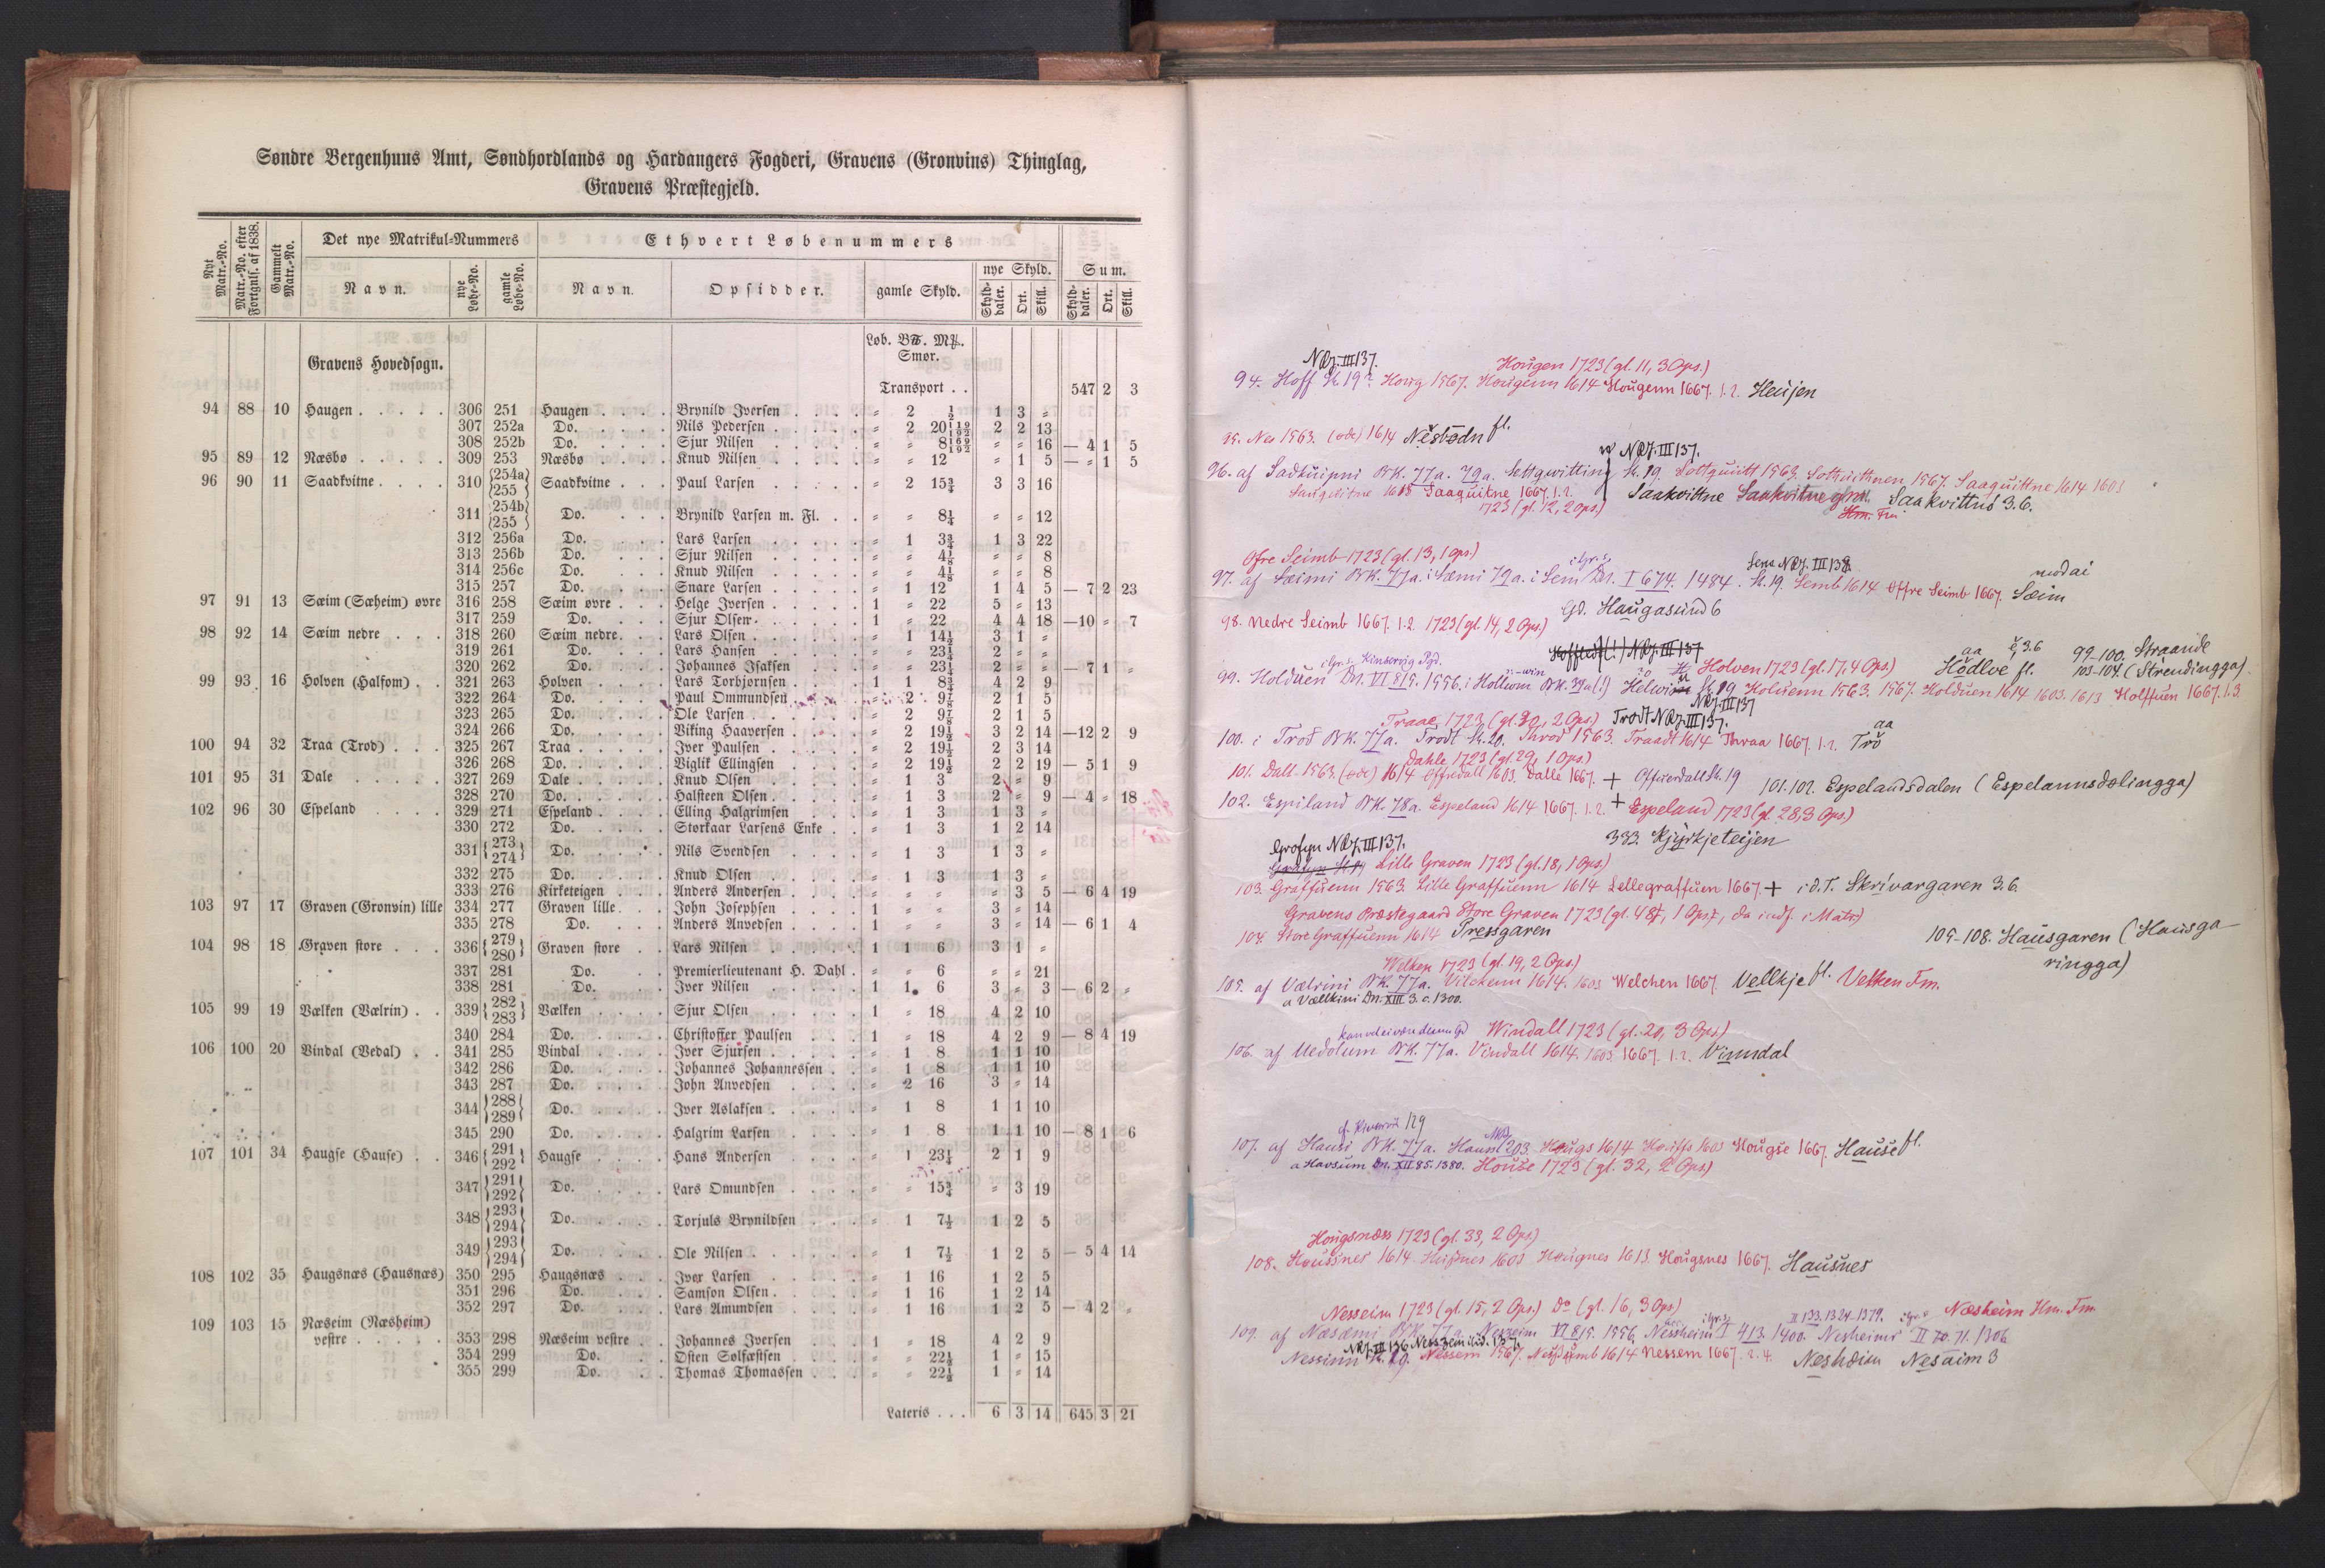 Søndre Bergenhuus Amt, Søndhordlands og Hardangers Fogderi, Gravens (Gronvins) Thinglag,
Gravens Præstegjeld.
Nyt Matr.-No. Matr.-No. efter Forignls. af 1838. Gammelt Matr.-No. Det nye Matrikul-Nummers Ethvert Løbenummers
Navn. nye Løbe-No. gamle Løbe-No. Navn. Opsidder. gamle Skyld. nye Skyld. Sum.
Skyld-daler. Ort. Skill. Skyld-daler. Ort. Skill.
Gravens Hovedsogn. Løb. B℔. M℔. Smør.
Transport . . 547 2 3
94 88 10 Haugen . . . . . 306 251 Haugen . . . . Brynild Iversen . . . . " 2 ½ 1 3 "
307 252a Do. . . . . Nils Pedersen . . . . . " 2 20 119/192 2 2 13
308 252b Do. . . . . Sjur Nilsen . . . . . " " 8 169/192 " " 16 — 4 1 5
95 89 12 Næsbø . . . . . 309 253 Næsbø . . . . Knud Nilsen . . . . . " " 12 " 1 5 — " 1 5
96 90 11 Saadkvitne . . . . 310 {254a 255} Saadkvitne . . . Paul Larsen . . . . . " 2 15¾ 3 3 16
311 {254b 255} Do. . . . Brynild Larsen m. Fl. . . " " 8¼ " " 12
312 256a Do. . . . Lars Larsen . . . . . " 1 3¾ 1 3 22
313 256b Do. . . . Sjur Nilsen . . . . . " " 4⅛ " " 8
314 256c Do. . . . Knud Nilsen . . . . . " " 4⅛ " " 8
315 257 Do. . . . Snare Larsen . . . . . " 1 12 1 4 5 — 7 2 23
97 91 13 Sæim (Sæheim) øvre 316 258 Sæim øvre . . . Helge Iversen . . . . . 1 " 22 5 " 13
317 259 Do. . . . Sjur Olsen . . . . . 1 " 22 4 4 18 —10 " 7
98 92 14 Sæim nedre . . . 318 260 Sæim nedre. . . Lars Olsen . . . . . " 1 14½ 3 1 "
319 261 Do. . . . Lars Hansen . . . . . " " 23¼ 2 " "
320 262 Do. . . . Johannes Isaksen . . . " " 23¼ 2 " " — 7 1 "
99 93 16 Holven (Halfom) . . 321 263 Holven . . . . Lars Torbjørnsen . . . . 1 1 8¾ 4 2 9
322 264 Do. . . . . Paul Ommundsen . . . . " 2 9⅞ 2 1 5
323 265 Do. . . . . Ole Larsen . . . . . " 2 9⅞ 2 1 5
324 266 Do. . . . . Viking Haaversen . . . . " 2 19½ 3 2 14 —12 2 9
100 94 32 Traa (Trod) . . . 325 267 Traa . . . . . Iver Paulsen . . . . . " 2 19½ 2 3 14
326 268 Do. . . . . Viglik Ellingsen . . . . " 2 19½ 2 2 19 — 5 1 9
101 95 31 Dale . . . . . 327 269 Dale . . . . . Knud Olsen . . . . . " 1 3 2 " 9
328 270 Do. . . . . Halsteen Olsen . . . . . " 1 3 2 " 9 — 4 " 18
102 96 30 Espeland . . . . 329 271 Espeland . . . . Elling Halgrimsen . . . " 1 3 1 3 "
330 272 Do. . . . . Storkaar Larsens Enke . . " 1 3 1 2 14
331 {273 274} Do. . . . . Nils Svendsen . . . . " 1 3 1 3 "
332 275 Do. . . . . Knud Olsen . . . . . " 1 3 1 3 "
333 276 Kirketeigen . . . Anders Andersen . . . . " " " " 3 5 — 6 4 19
103 97 17 Graven (Gronvin) lille 334 277 Graven lille . . . John Josephsen . . . . 1 " " 3 " 14
335 278 Do. . . . Anders Anvedsen . . . . 1 " " 3 " 14 — 6 1 4
104 98 18 Graven store . . . 336 {279 280} Graven store . . Lars Nilsen . . . . . 1 1 6 3 1 "
337 281 Do. . . Premierlieutenant H. Dahl . " " 6 " " 21
338 281 Do. . . Iver Nilsen . . . . . 1 1 6 3 " 3 — 6 2 "
105 99 19 Vælken (Vælrin) . . 339 {282 283} Vælken . . . . Sjur Olsen . . . . . 1 " 18 4 2 10
340 284 Do. . . . . Christoffer Paulsen . . . 1 " 18 4 2 9 — 8 4 19
106 100 20 Vindal (Vedal) . . 341 285 Vindal . . . . Iver Sjursen . . . . . " 1 8 1 1 10
342 286 Do. . . . . Johannes Johannessen . . " 1 8 1 1 10
343 287 Do. . . . . John Anvedsen . . . . " 2 16 3 " 14
344 {288 289} Do. . . . . Iver Aslaksen . . . . . " 1 8 1 1 10
345 290 Do. . . . . Halgrim Larsen . . . . " 1 8 1 1 10 — 8 1 6
107 101 34 Haugse (Hause) . . 346 {291 292} Haugse . . . . Hans Andersen . . . . " 1 23¼ 2 1 9
347 {291 292} Do. . . . . Lars Omundsen . . . . " " 15¾ " 3 19
348 {293 294} Do. . . . . Torjuls Brynildsen . . . " 1 7½ 1 2 5
349 {293 294} Do. . . . . Ole Nilsen . . . . . " 1 7½ 1 2 5 — 5 4 14
108 102 35 Haugsnæs (Hausnæs) 350 295 Haugsnæs . . . Iver Larsen . . . . . " 1 16 1 2 5
351 296 Do. . . . Samson Olsen . . . . . " 1 16 1 2 14
352 297 Do. . . . Lars Amundsen . . . . " 1 16 1 2 5 — 4 2 "
109 103 15 Næseim (Næsheim)
vestre . . . . . 353 298 Næseim vestre . . Johannes Iversen . . . . 1 " 18 4 2 9
354 299 Do. . . Osten Solfæstsen . . . . " " 22½ 1 " 15
355 299 Do. . . Thomas Thomassen . . . " " 22½ 1 " 14
Lateris . . . 6 3 14 645 3 21
NRJ. III 137. Hougen 1723 (gl. 11, 3 Ops.)
94. Hoff St. 19. Houg 1567. Hougenn 1614 Hougenn 1667. 1.2. Heujen
95. Nes 1563. (øde) 1614 Nesbødn fl.
NRJ. III 137.
96. af Sadkuipni BK. 77a. 79a. Settgwitting St. 19. Sottguitt 1563. Sottuittnen 1567. Saaguittne 1614 1603
Saaguitne 1667. 1.2. Saakvittne Saakvittnó 3.6.
1723 (gl. 12, 2 Ops.) Hm. Fm
Øfre Seimb 1723 (gl. 13, 1 Ops.)
97. af Sæimi BK. 77a. i Sæmi 79a. i Sem Dn. I 674. 1484. St. 19. Semb 1614 Øffre Seimb 1667. Sæim
med ai
98. Nedre Seimb 1667. 1.2. 1723 (gl. 14, 2 Ops.) Gd. Haugasund 6
Kinservig Pgd. Holven 1723 (gl. 17, 4 Ops.) Hödlve fl. 99-100. Straande
99. Holduen Dn. VI 815. 1556. i Hollwin BK. 39a (!) St. 19 Holuenn 1563. 1567. Holduen 1614 1603. 1613 Holffuen 1667. 1.3 103-104. (Strendingga)
NRJ. III 137
Traae 1723 (gl. 30, 2 Ops.) Trodt NRJ. III 137.
100. i Trod BK. 77a. Trodt St. 20. Throd 1563. Traadt 1614 Thraa 1667. 1.2. Trö
Dahle 1723 (gl. 29, 1 Ops.)
101. Dall 1563. (øde) 1614 Offredall 1603. Dalle 1667. + Offuerdall St. 19 101.102. Espelandsdalen (Espelannsdølingga)
102. Espiland BK. 78a. Espeland 1614 1667. 1.2. + Espeland 1723 (gl. 28, 3 Ops.)
333. Kjyrkjeteijen
Grofyn NRJ. III 137.
Lille Graven 1723 (gl. 18, 1 Ops.)
103. Graffuenn 1563. Lille Graffuenn 1614 Lellegraffuen 1667. + i d. T. Skrivargaren 3.6.
Gravens Præstegaard Store Graven 1723 (gl. 48, 1 Ops., da indf. i Matr.)
104. Store Graffuenn 1614 Pressgaren
105-108. Hausgaren (Hausga
ringga)
Welken 1723 (gl. 19, 2 Ops.)
105. af Vælrini BK. 77a. Vilchenn 1614. 1603 Welchen 1667. Vellkje fl. Velken Fm.
a Vællkini Dn. XII 3. c. 1300.
Windall 1723 (gl. 20, 3 Ops.)
106. af Uedolum BK. 77a. Vindall 1614. 1603. 1667. 1.2. Vinndal
129
107. af Hausi BK. 77a. Hausse 203. Hougs 1614 Houffs 1603 Hougse 1667. Hause fl.
a Havsum Dn. XII 85. 1380. House 1723 (gl. 32, 2 Ops.)
Hougsnæs 1723 (gl. 33, 2 Ops.)
108. Haussnes 1614. 1603 Hougnes 1613. Hougsnes 1667. Hausnes
Nesseim 1723 (gl. 15, 2 Ops.) Do (gl. 16, 3 Ops.) II 133. 1324. 1379. Næsheim Hm. Fm.
109. af Næsæmi BK. 77a. Neszeim VI 815. 1556. Nessheim I 413. 1400. Nesheimr II 70. 71. 1306
NRJ. III 136
Nessinn St. 19. Nessem 1567. 1614 Nessem 1667. 2.4. Neshæim Nesaim 3